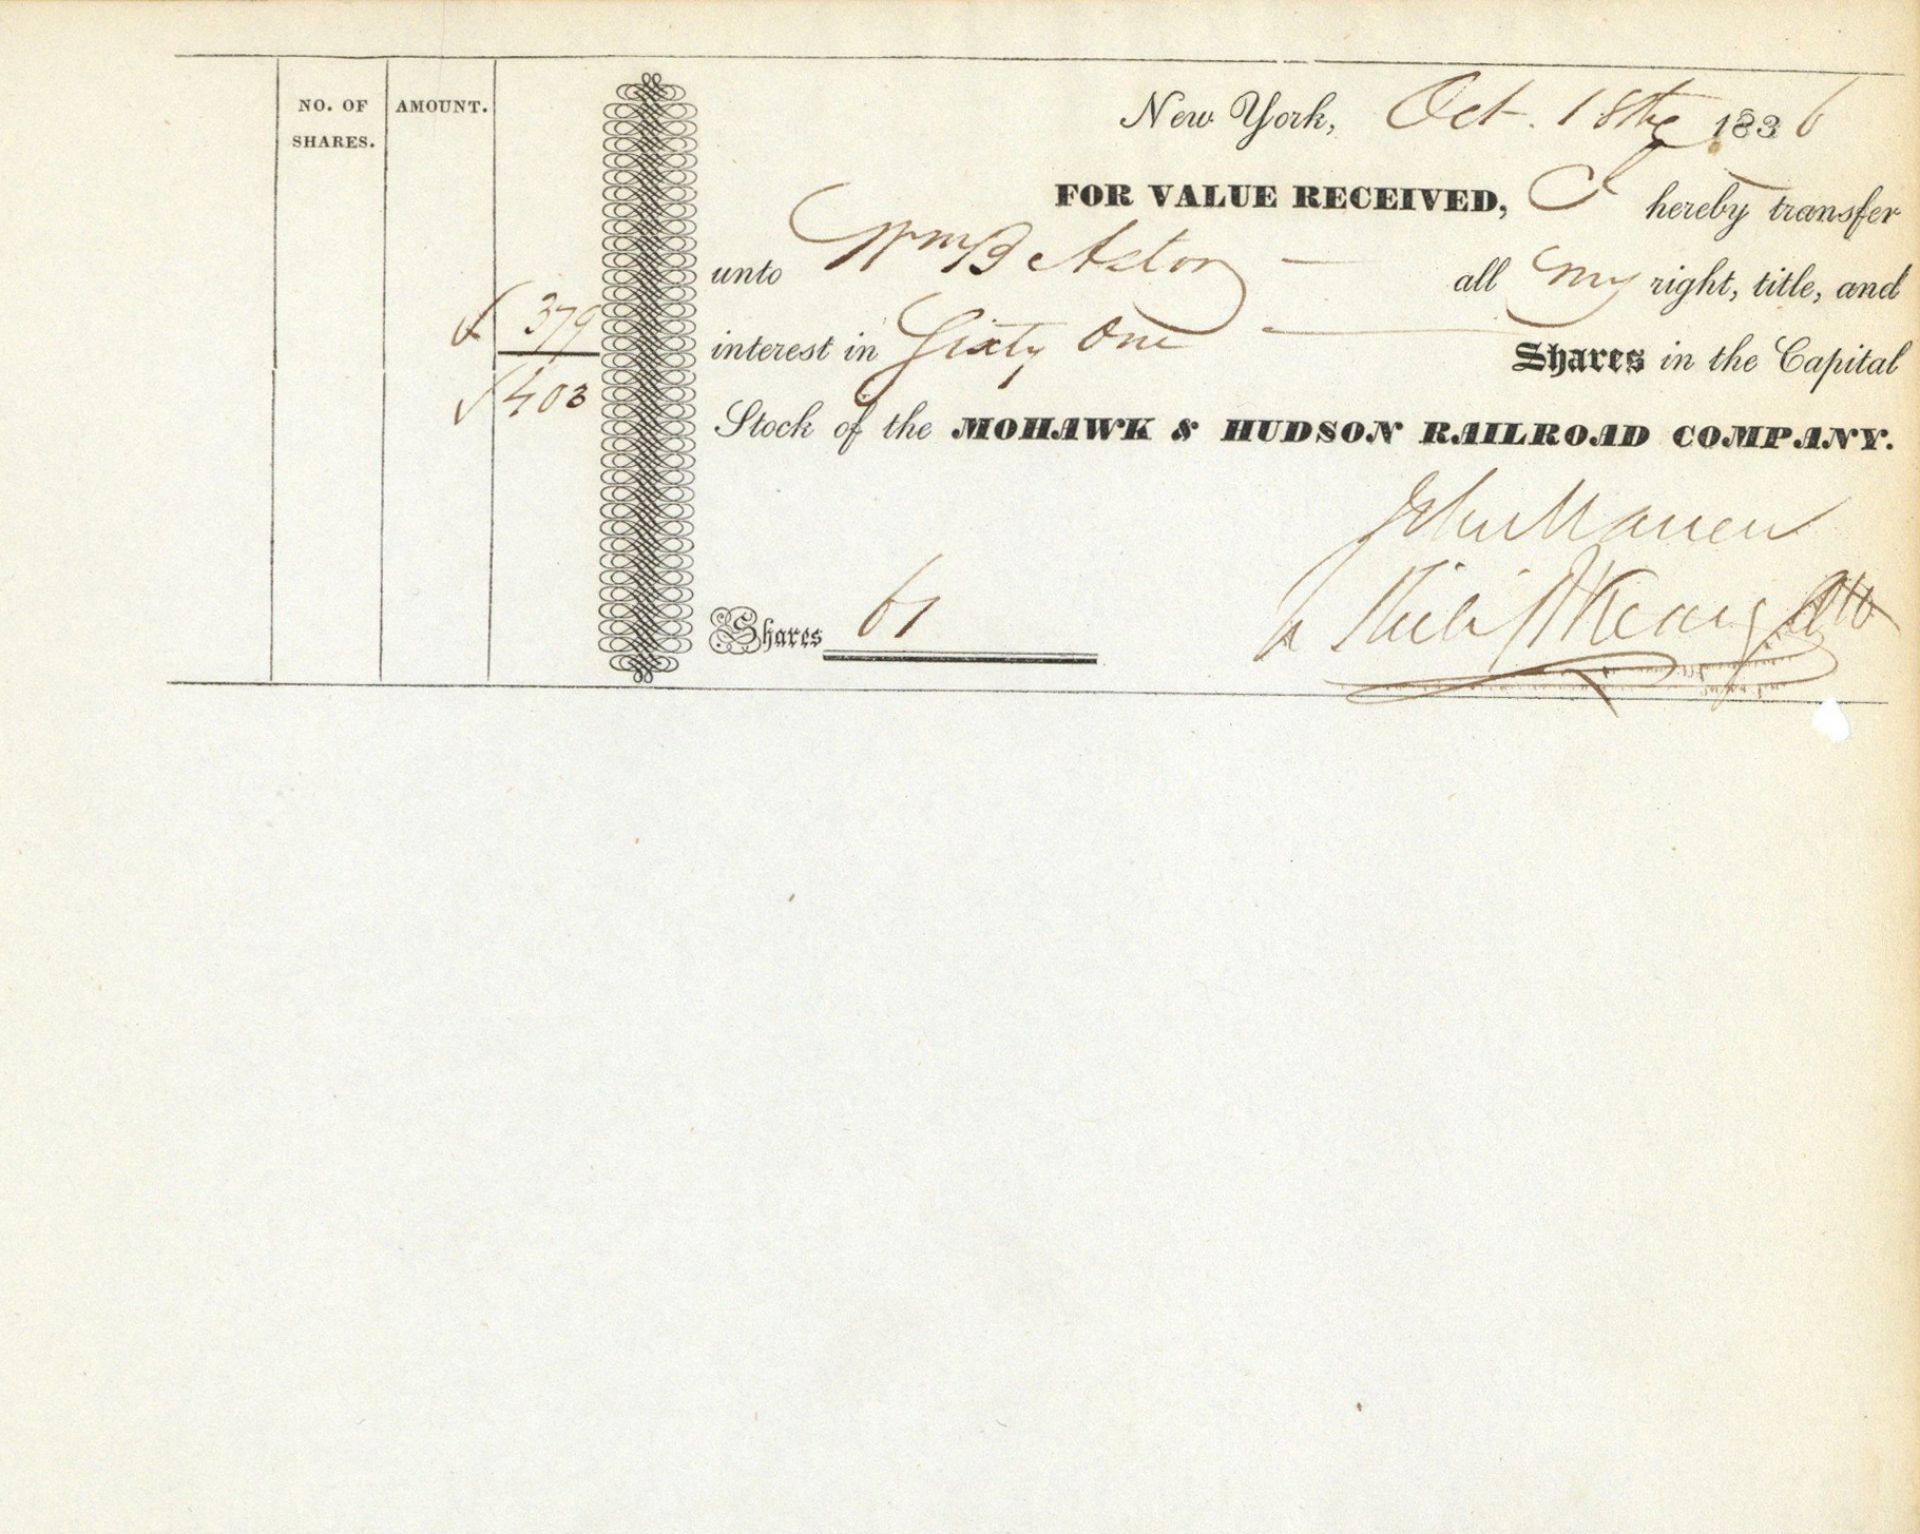 NO. OF SHARES.
AMOUNT.
379
403
New York, Oct. 18th 1836
FOR VALUE RECEIVED, I hereby transfer
unto Wm B Astor all my right, title, and
interest in Sixty One Shares in the Capital
Stock of the MOHAWK & HUDSON RAILROAD COMPANY.
John Warren
Shares 61